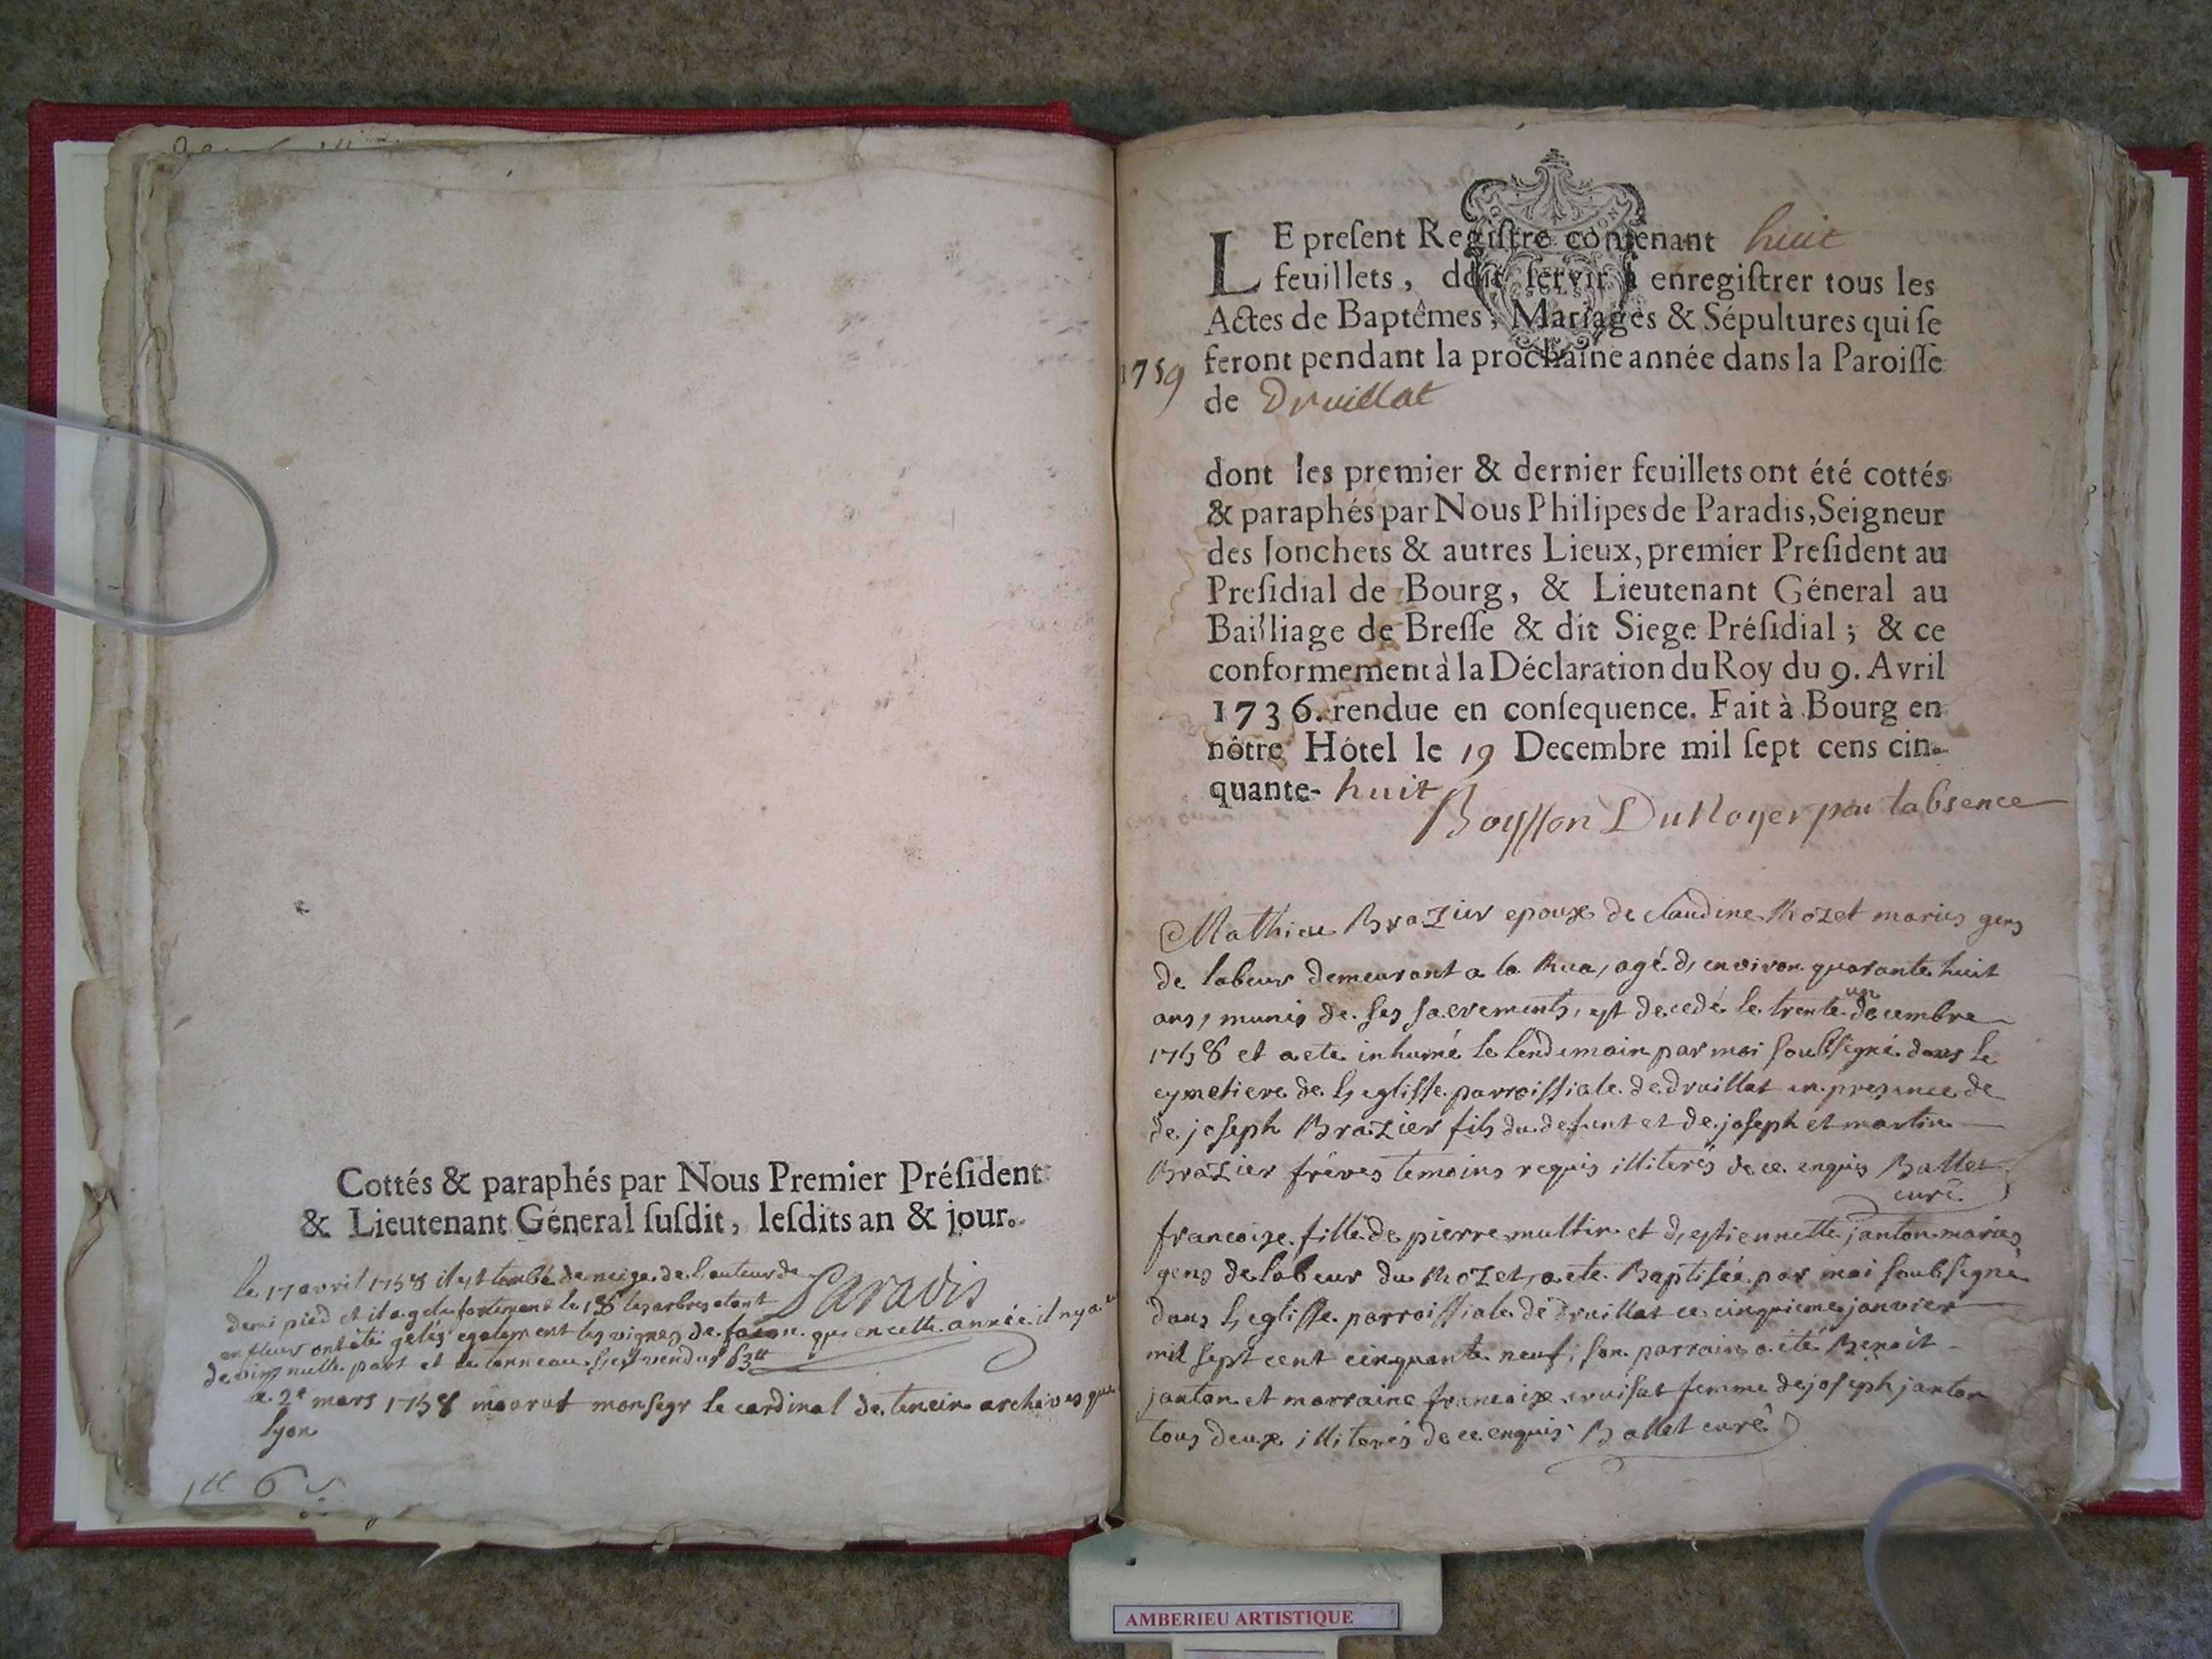 Cottés & paraphés par Nous Premier Préſident
& Lieutenant Géneral ſuſdit, leſdits an & jour.
le 17 avril 1758 il est tombé de neige de hauteur de
Paradis
demi pied et il a gelé fortement le 18 les arbres etant
en fleur ont été gelés egalement les vignes de façon que en cette année il n'y a
de vin nulle part et le tonneau s'est vendu 63tt
le 2e mars 1758 mourut monsegr le cardinal de tencin archevesque
Lyon
1tt 6 s
LE preſent Regiſtre contenant huit
feuillets, doit ſervir à enregiſtrer tous les
Actes de Baptêmes, Mariages & Sépultures qui ſe
1759 feront pendant la prochaine année dans la Paroiſſe
de Druillat
dont les premier & dernier feuillets ont été cottés
& paraphés par Nous Philipes de Paradis, Seigneur
des Jonchets & autres Lieux, premier Preſident au
Preſidial de Bourg, & Lieutenant Géneral au
Bailliage de Breſſe & dit Siege Préſidial ; & ce
conformement à la Déclaration du Roy du 9. Avril
1736. rendue en conſequence. Fait à Bourg en
nôtre Hôtel le 19 Decembre mil ſept cens cin-
quante- huit
Boysson DuNoyer pour labsence
Mathieu Brazier epoux de claudine Rozet mariés gens
de labeur demeurant a la Rua, agé d, environ quarante huit
ans, munis de ses sacrements, est decedé le trente un decembre
1758 et a eté inhumé le lendemain par moi soubsigné dans le
cymetiere de l, eglisse parroissiale de druillat en presence de
de joseph Brazier fils du defunt et de joseph et martin
Brazier fréres temoins requis illiterés de ce enquis Ballet
curé
francoise fille de pierre multin et d, estiennette janton mariés
gens de labeur du Rozet, a eté Baptisée par moi soubsigné
dans l, eglisse parroissiale de druillat ce cinquieme janvier
mil sept cent cinquante neuf, son parrain a eté Benoit
janton et marraine francoise femme de joseph janton
tous deux illiterés de ce enquis Ballet curé
AMBERIEU ARTISTIQUE